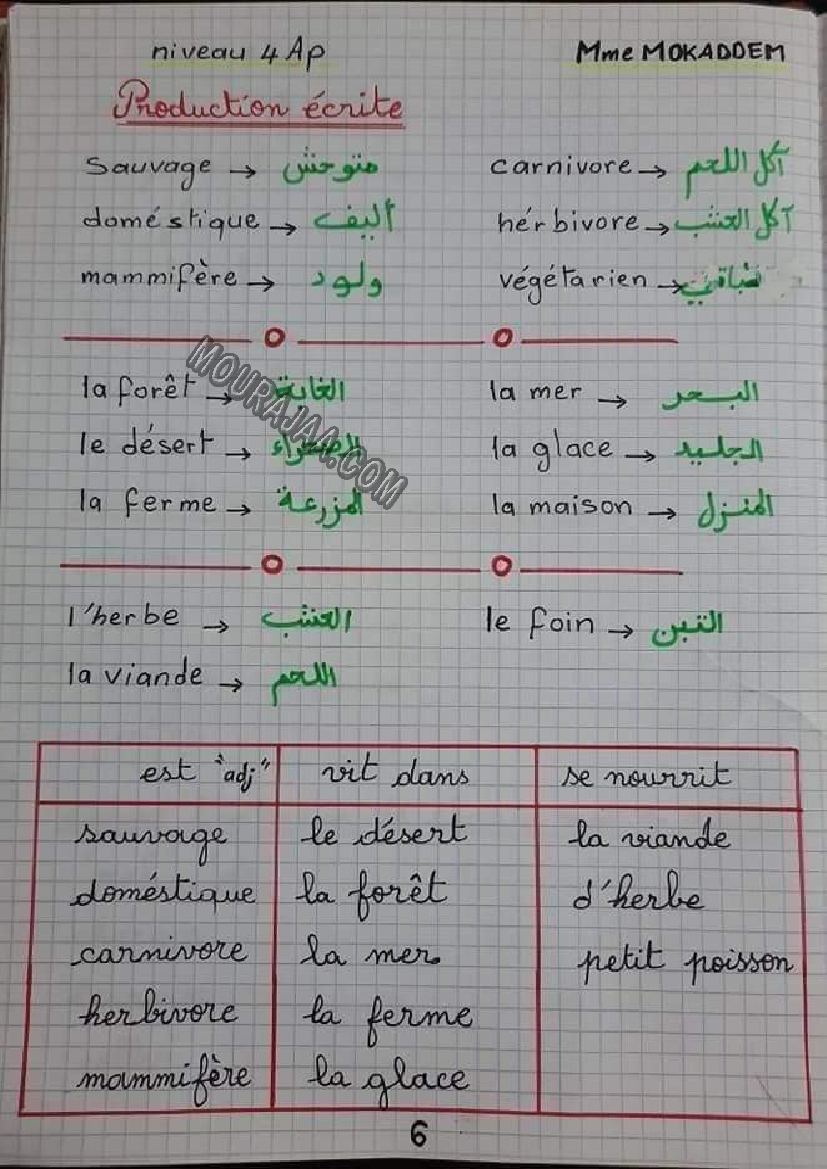 niveau 4 Ap Mme MOKADDEM
Production écrite
sauvage → متوحش carnivore → آكل اللحم
doméstique → أليف hérbivore → آكل العشب
mammifère → ولود végétarien → نباتي
la forêt → الغابة la mer → البحر
le désert → الصحراء la glace → الجليد
la ferme → المزرعة la maison → المنزل
MOURAJAA.COM
l'herbe → العشب le foin → التبن
la viande → اللحم
est "adj" vit dans se nourrit
sauvage le désert la viande
doméstique la forêt d'herbe
carnivore la mer petit poisson
herbivore la ferme
mammifère la glace
6